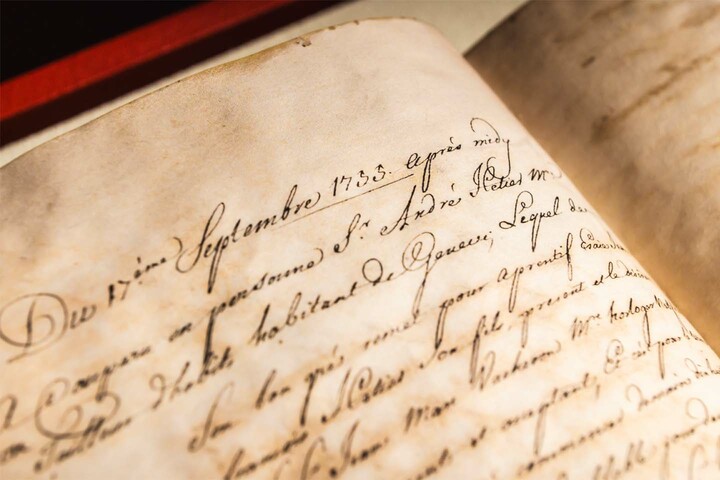 Du 17ème Septembre 1755. après midy
A Comparu en personne Sr. André Hetier Me.
Tailleur d'habits habitant de Geneve, Lequel de
Son bon gré remet pour aprentif
françois Hetier son fils present et le
Sr. Jean Marc Vacheron Me. horloger
present et acceptant, Et ce pour
commencer demain